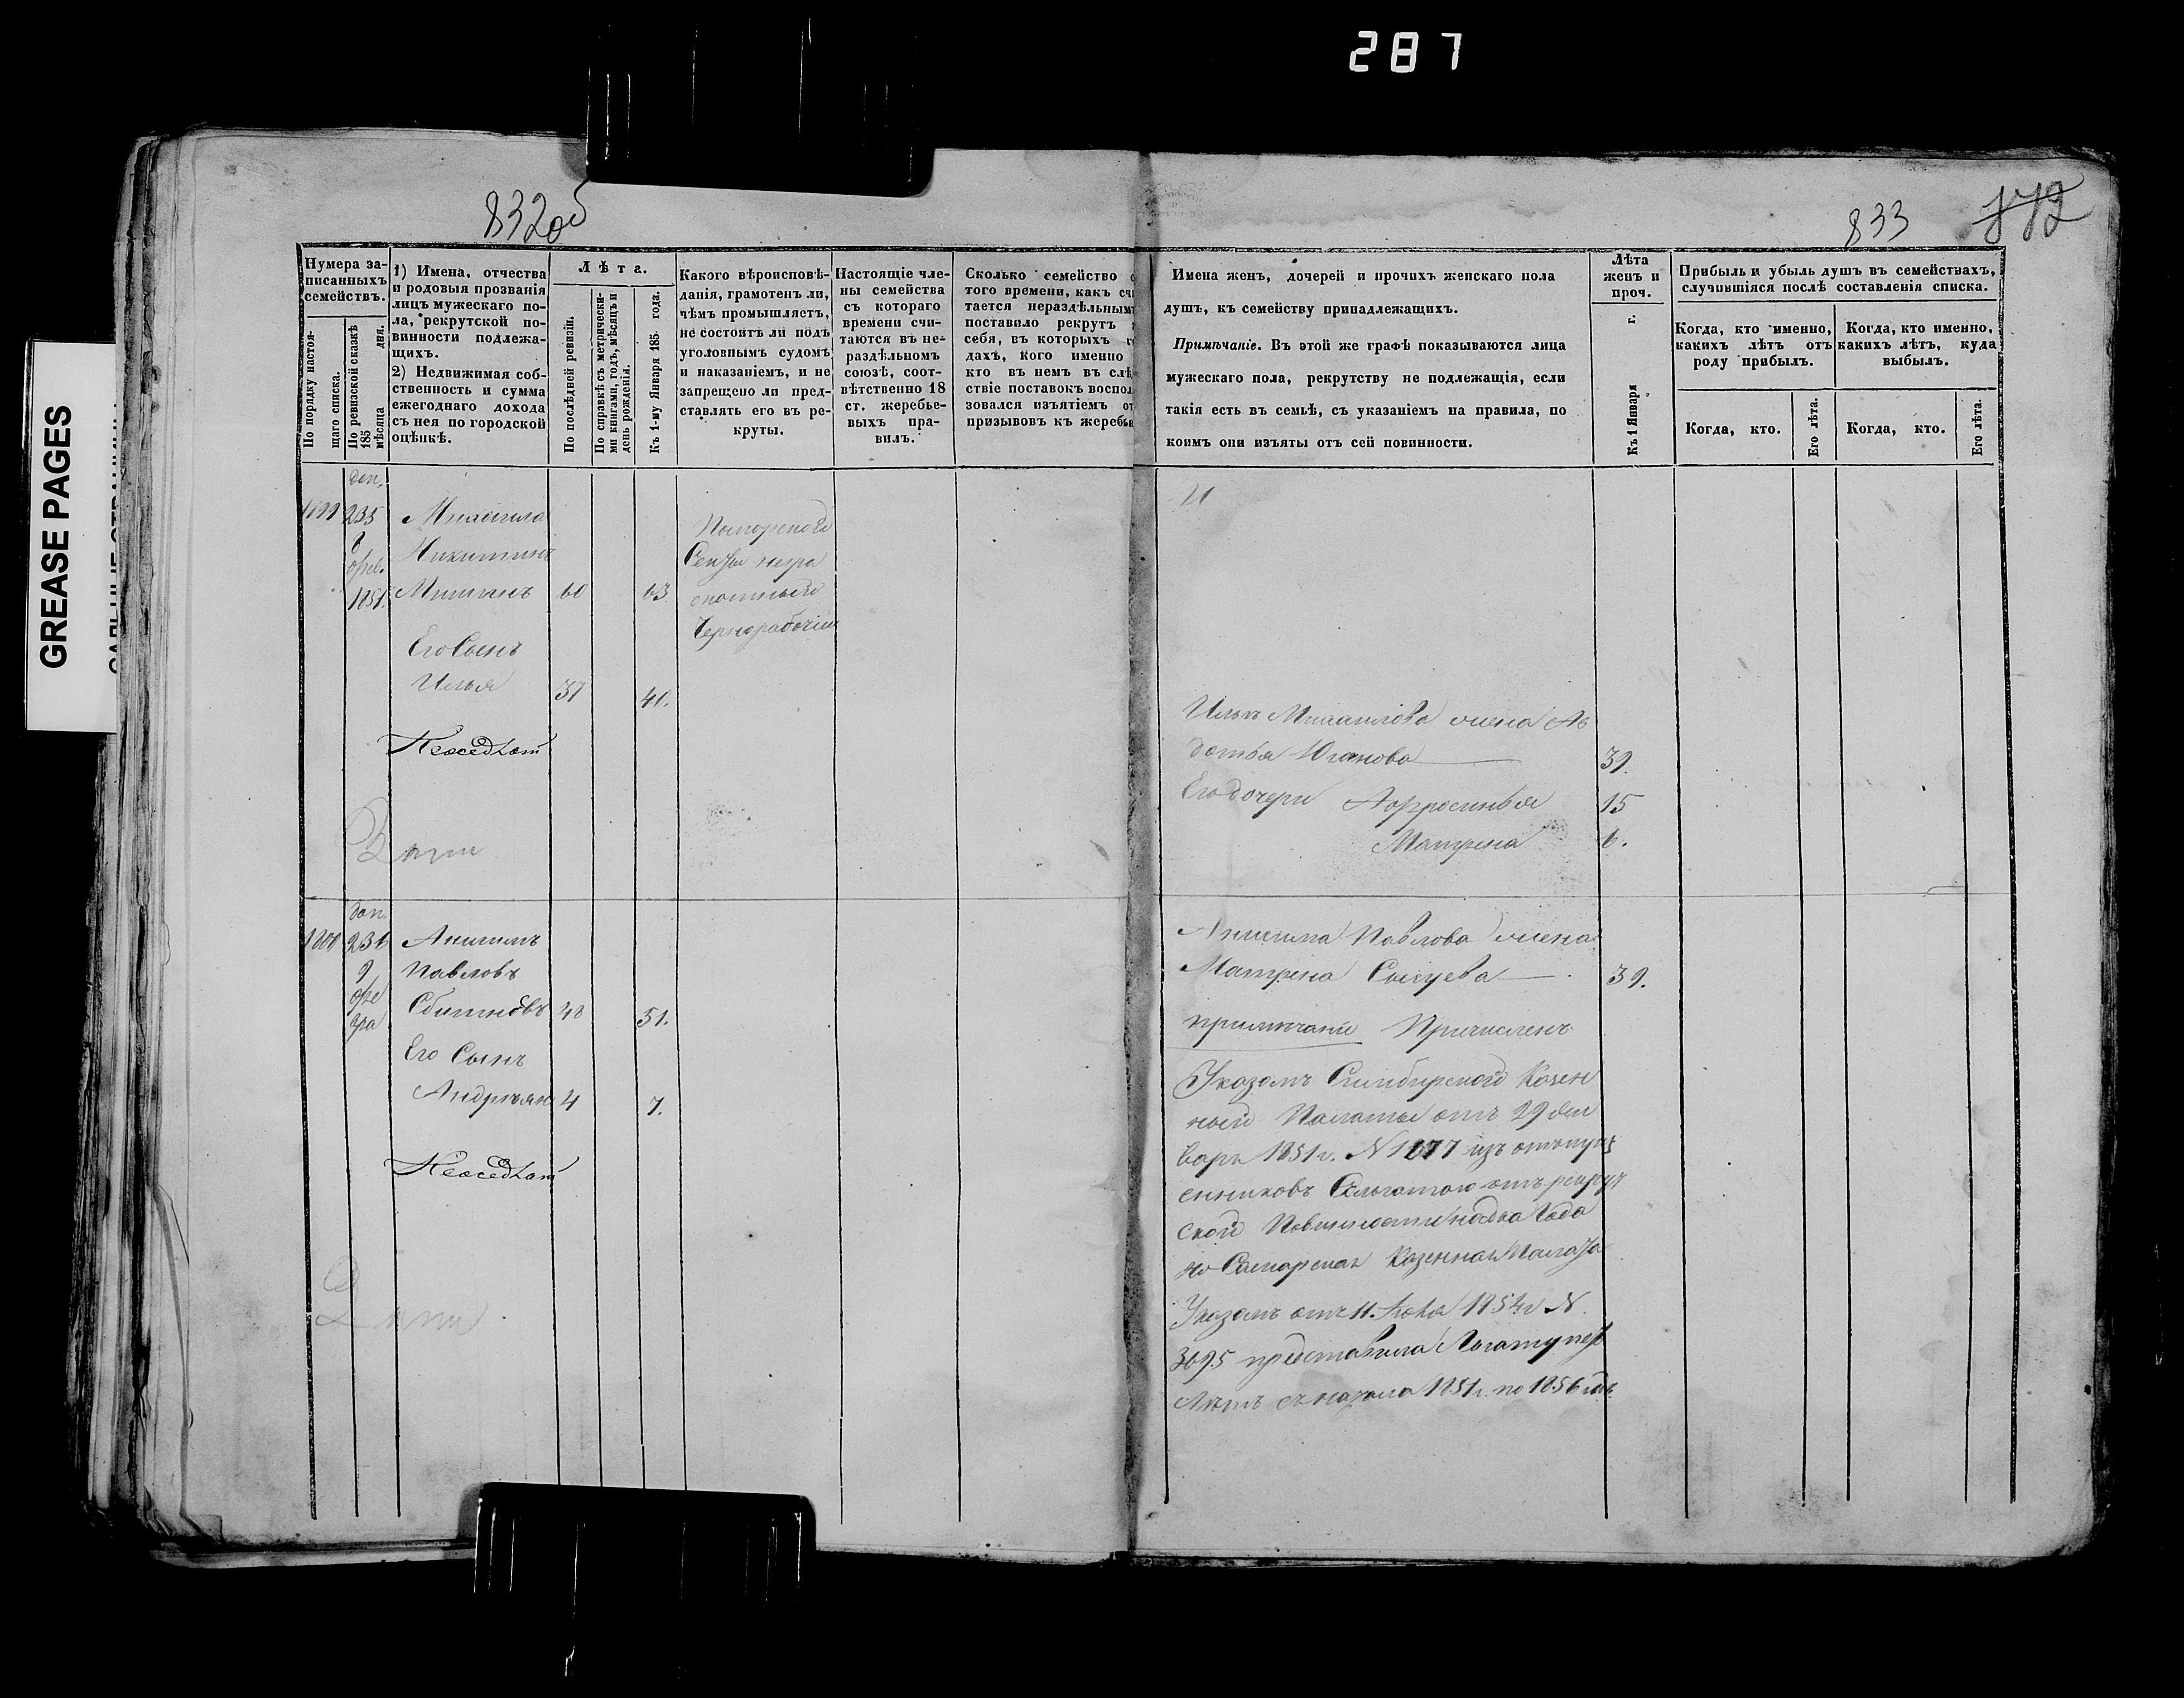 287
832об
833
172
GREASE PAGES
Нумера за-
писанныхъ
семействъ.
По порядку настоя-
щаго списка.
По ревизской сказкѣ
185 дня.
мѣсяца
1) Имена, отчества
и родовыя прозванія
лицъ мужескаго по-
ла, рекрутской по-
винности подлежа-
щихъ.
2) Недвижимая соб-
ственность и сумма
ежегоднаго дохода
съ нея по городской
оцѣнкѣ.
Лѣта.
По послѣдней ревизіи.
По справкѣ съ метрически-
ми книгами, годъ, мѣсяцъ и
день рожденія.
Къ 1-му Января 185 года.
Какого вѣроисповѣ-
данія, грамотенъ ли,
чѣмъ промышляетъ,
не состоитъ ли подъ
уголовнымъ судомъ
и наказаніемъ, и не
запрещено ли пред-
ставлять его въ ре-
круты.
Настоящіе чле-
ны семейства
съ котораго
времени счи-
таются въ не-
раздѣльномъ
союзѣ, соот-
вѣтственно 18
ст. жеребье-
выхъ пра-
вилъ.
Сколько семейство
того времени, какъ сч
тается нераздѣльным
поставило рекрутъ
себя, въ которыхъ г
дахъ, кого именно
кто въ немъ въ слѣ
ствіе поставокъ воспол
зовался изъятіемъ от
призывовъ къ жеребь
Имена женъ, дочерей и прочихъ женскаго пола
душъ, къ семейству принадлежащихъ.
Примѣчаніе. Въ этой же графѣ показываются лица
мужескаго пола, рекрутству не подлежащія, если
такія есть въ семьѣ, съ указаніемъ на правила, по
коимъ они изъяты отъ сей повинности.
Лѣта
женъ и
проч.
Къ 1 Января г.
Прибыль и убыль душъ въ семействахъ,
случившіяся послѣ составленія списка.
Когда, кто именно,
какихъ лѣтъ отъ
роду прибылъ.
Когда, кто именно,
какихъ лѣтъ, куда
выбылъ.
Когда, кто.
Его лѣта.
Когда, кто.
Его лѣта.
доп.
235
Михаила
Никитинъ
1851.
60
63
Чернорабочій
Его Сынъ
Илья 37 40.
Ильи Михаилова жена Ав
дотья 39.
Его дочери Афросинья 15
Матрена 6.
доп.
236 Анисимъ
9 Павловъ
48 51.
Его Сынъ
Андреянъ 4 7.
Анисима Павлова жена
Матрена Сысуева 39.
примѣчаніе Причисленъ
Указомъ Симбирской Казен
ной Палаты отъ 29 Ян
варя 1851 г. N 1677 изъ отпущ
енниковъ Сльготою отъ рекрут
ской Повинности на два Года
но Самарская Казенная Палата
Указомъ отъ 11. Іюня 1854 г N.
3695 предоставила Льготу
Лѣтъ съ начала 1851 г. по 1856 годъ